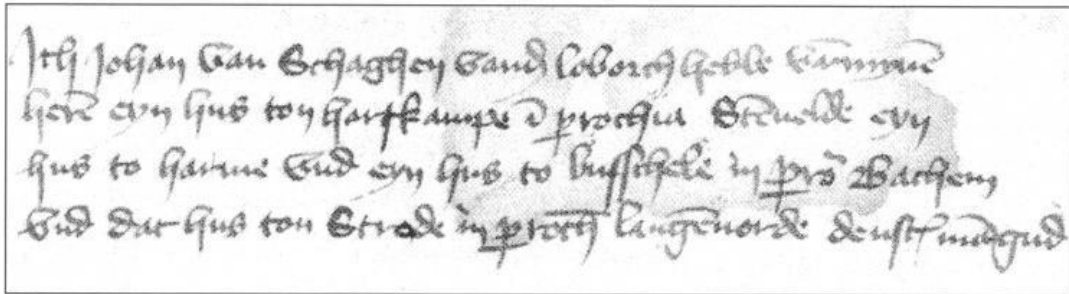 Ich Johan van Schaghen vand loborch hebbe van mynē
herē eyn hus ton harskampe ī prochia Stēuelde eyn
hus to harme vnd eyn hus to busschele in pro Bachem
vnd dat hus ton Strode in proch langēuorde denst māgud